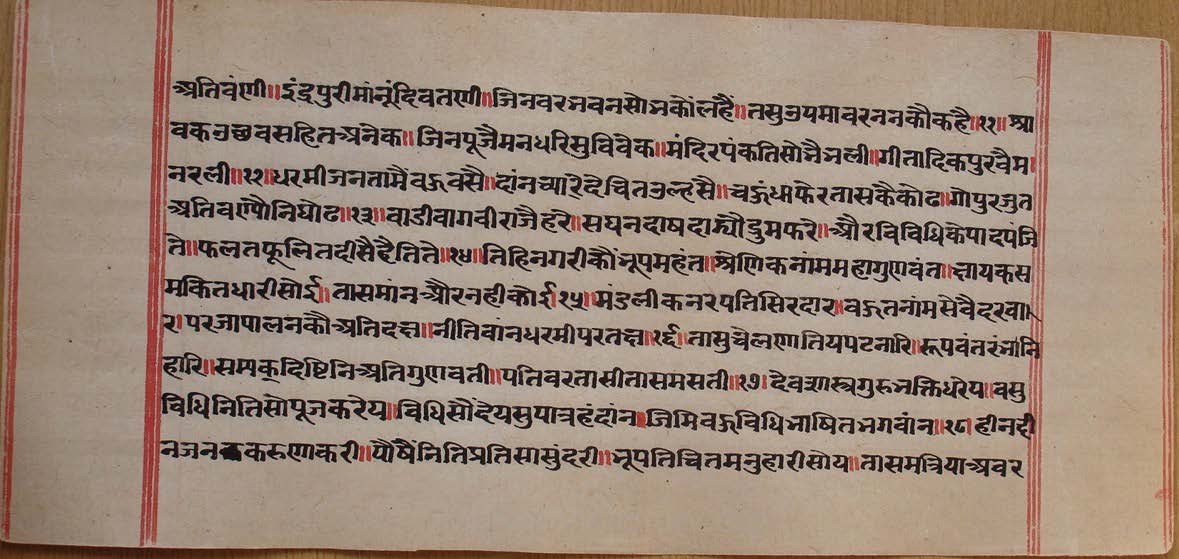 अतिवंणी॥इंद्रपुरीमांनूंदिवतणी॥जिनवरभवनसोभकोंलहैं॥तसुउपमावरननकौकहै॥११॥श्रा
वकउछवसहितअनेक॥जिनपूजैमनधरिसुविवेक॥मंदिरपंकतिसोभैभली॥गीतादिकपुरवैम
नरली॥१२॥धरमीजनतामैंवहुवसै॥दांनच्यारैदेचितउल्हसै॥चहुंधाफेरतासकैकोढ॥गोपुरजुत
अतिवणपौनिघोढ॥१३॥वाडीवागवीराजैहरे॥सघनदाषदाड्यौद्रुमफरे॥औरविविधिकेपादपजि
ते॥फलतफूलितदीसैहैतिते॥१४॥तिहिनगरीकौंभूपमहंत॥श्रेणिकनांममहागुणवंत॥क्षायकस
मकितधारीसोई॥तासमांनऔरनहीकोई॥१५॥मंडलीकनरपतिसिरदार॥वहुतनांमसेवैदरवा
र॥परजापालनकौअतिदक्ष॥नीतिवांनधरमीपरतक्ष॥१६॥तासुचेलणातियपटनारि॥रूपवंतरंभानि
हारि॥सम्यक्दिष्टिनिअतिगुणवती॥पतिवरतासीतासमसती॥१७॥देवशास्त्रगुरुभक्तिधरेय॥वसु
विधिनितिसोपूजकरेय॥विधिसौंदेयसुपात्रहंदांन॥जिमिवहुविधिभाषितभगवांन॥१८॥हीनदी
नजनकरुणाकरी॥पौषैंनितिप्रतिसासुंदरी॥भूपतिचितमनुहारीसोय॥तासमत्रियाअवर